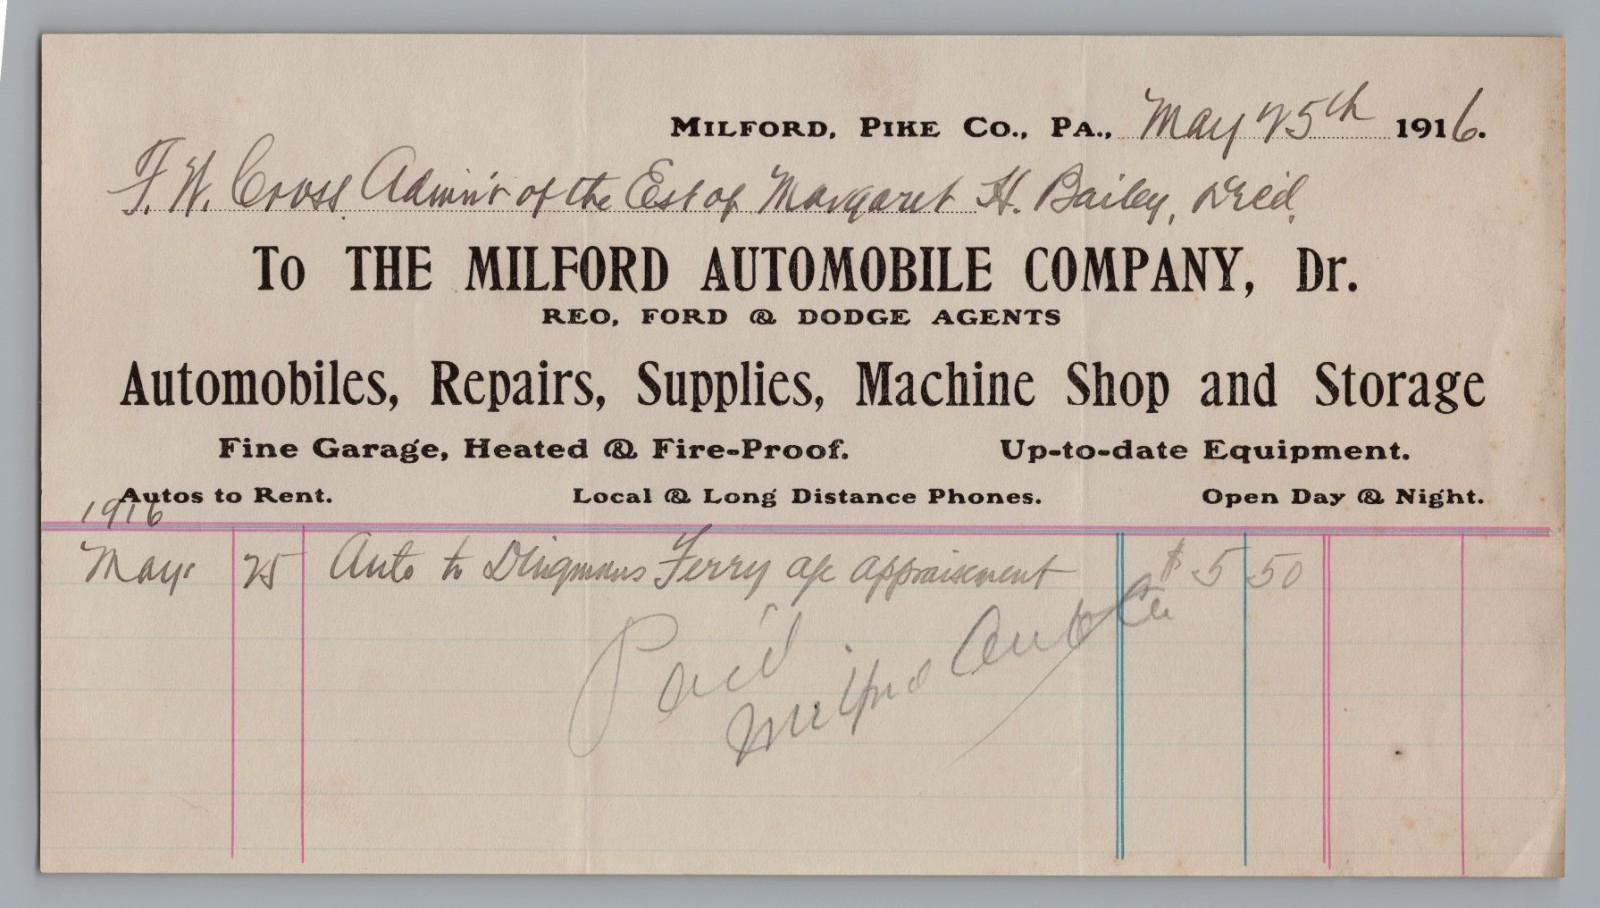 MILFORD, PIKE CO., PA., May 25th 1916.
F. W. Cross Admin'r of the Est of Margaret H. Bailey, Dec'd.
To THE MILFORD AUTOMOBILE COMPANY, Dr.
REO, FORD & DODGE AGENTS
Automobiles, Repairs, Supplies, Machine Shop and Storage
Fine Garage, Heated & Fire-Proof. Up-to-date Equipment.
Autos to Rent. Local & Long Distance Phones. Open Day & Night.
1916
May 25 Auto to Dingmans Ferry a/c appraisement $ 5 50
Paid
Milford Auto Co